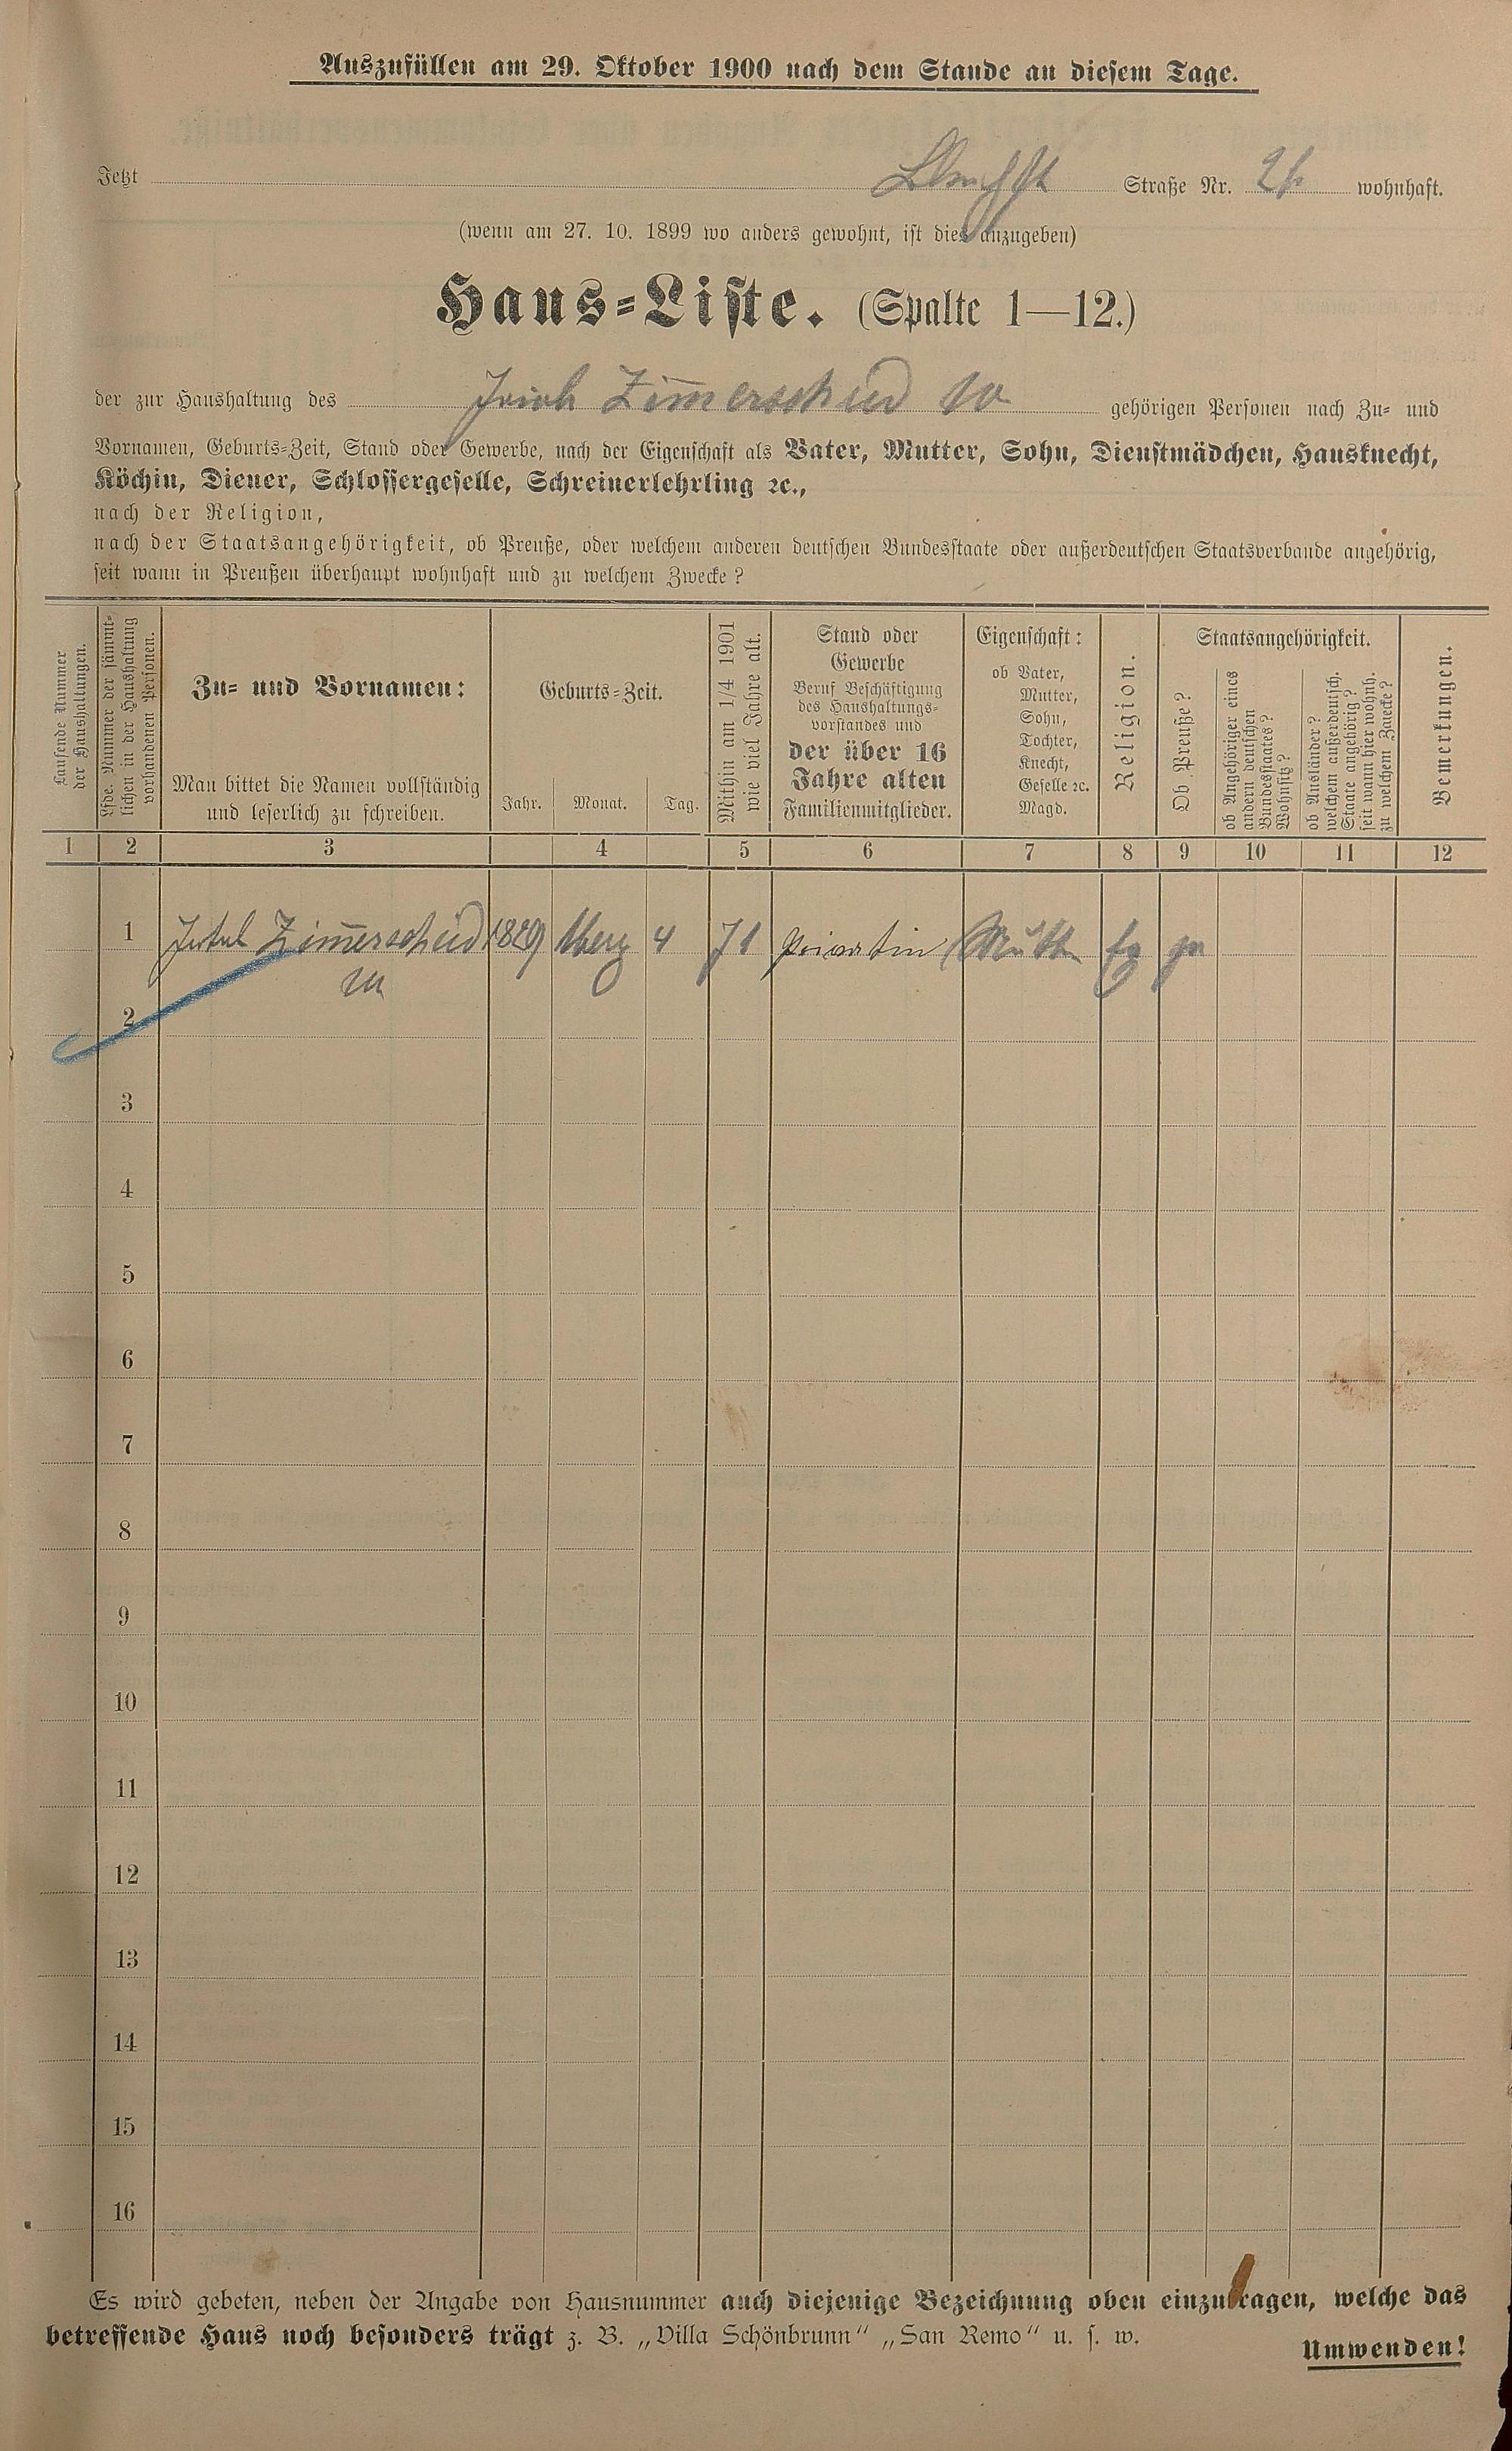 Auszufüllen am 29. Oktober 1900 nach dem Stande an diesem Tage.
Jetzt Straße Nr. wohnhaft.
(wenn am 27. 10. 1899 wo anders gewohnt, ist dies anzugeben)
Haus-Liste. (Spalte 1—12.)
der zur Haushaltung des Zim̄erscheid gehörigen Personen nach Zu- und
Vornamen, Geburts-Zeit, Stand oder Gewerbe, nach der Eigenschaft als Vater, Mutter, Sohn, Dienstmädchen, Hausknecht,
Köchin, Diener, Schlossergeselle, Schreinerlehrling ꝛc.,
nach der Religion,
nach der Staatsangehörigkeit, ob Preuße, oder welchem anderen deutschen Bundesstaate oder außerdeutschen Staatsverbande angehörig,
seit wann in Preußen überhaupt wohnhaft und zu welchem Zwecke?
Laufende Nummer
der Haushaltungen.
Lfde. Nummer der sämmt-
lichen in der Haushaltung
vorhandenen Personen.
Zu- und Vornamen:
Man bittet die Namen vollständig
und leserlich zu schreiben.
Geburts-Zeit.
Jahr. Monat. Tag.
Mithin am 1/4 1901
wie viel Jahre alt.
Stand oder
Gewerbe
Beruf Beschäftigung
des Haushaltungs-
vorstandes und
der über 16
Jahre alten
Familienmitglieder.
Eigenschaft:
ob Vater,
Mutter,
Sohn,
Tochter,
Knecht,
Geselle ꝛc.
Magd.
Religion.
Staatsangehörigkeit.
Ob Preuße?
ob Angehöriger eines
andern deutschen
Bundesstaates?
Wohnsitz?
ob Ausländer?
welchem außerdeutsch.
Staate angehörig?
seit wann hier wohnh.
zu welchem Zwecke?
Bemerkungen.
1 2 3 4 5 6 7 8 9 10 11 12
1 Zim̄erscheid 1829 Merz 4 71 privatin Mutter ja
2
3
4
5
6
7
8
9
10
11
12
13
14
15
16
Es wird gebeten, neben der Angabe von Hausnummer auch diejenige Bezeichnung oben einzutragen, welche das
betreffende Haus noch besonders trägt z. B. „Villa Schönbrunn“ „San Remo“ u. s. w.
Umwenden!